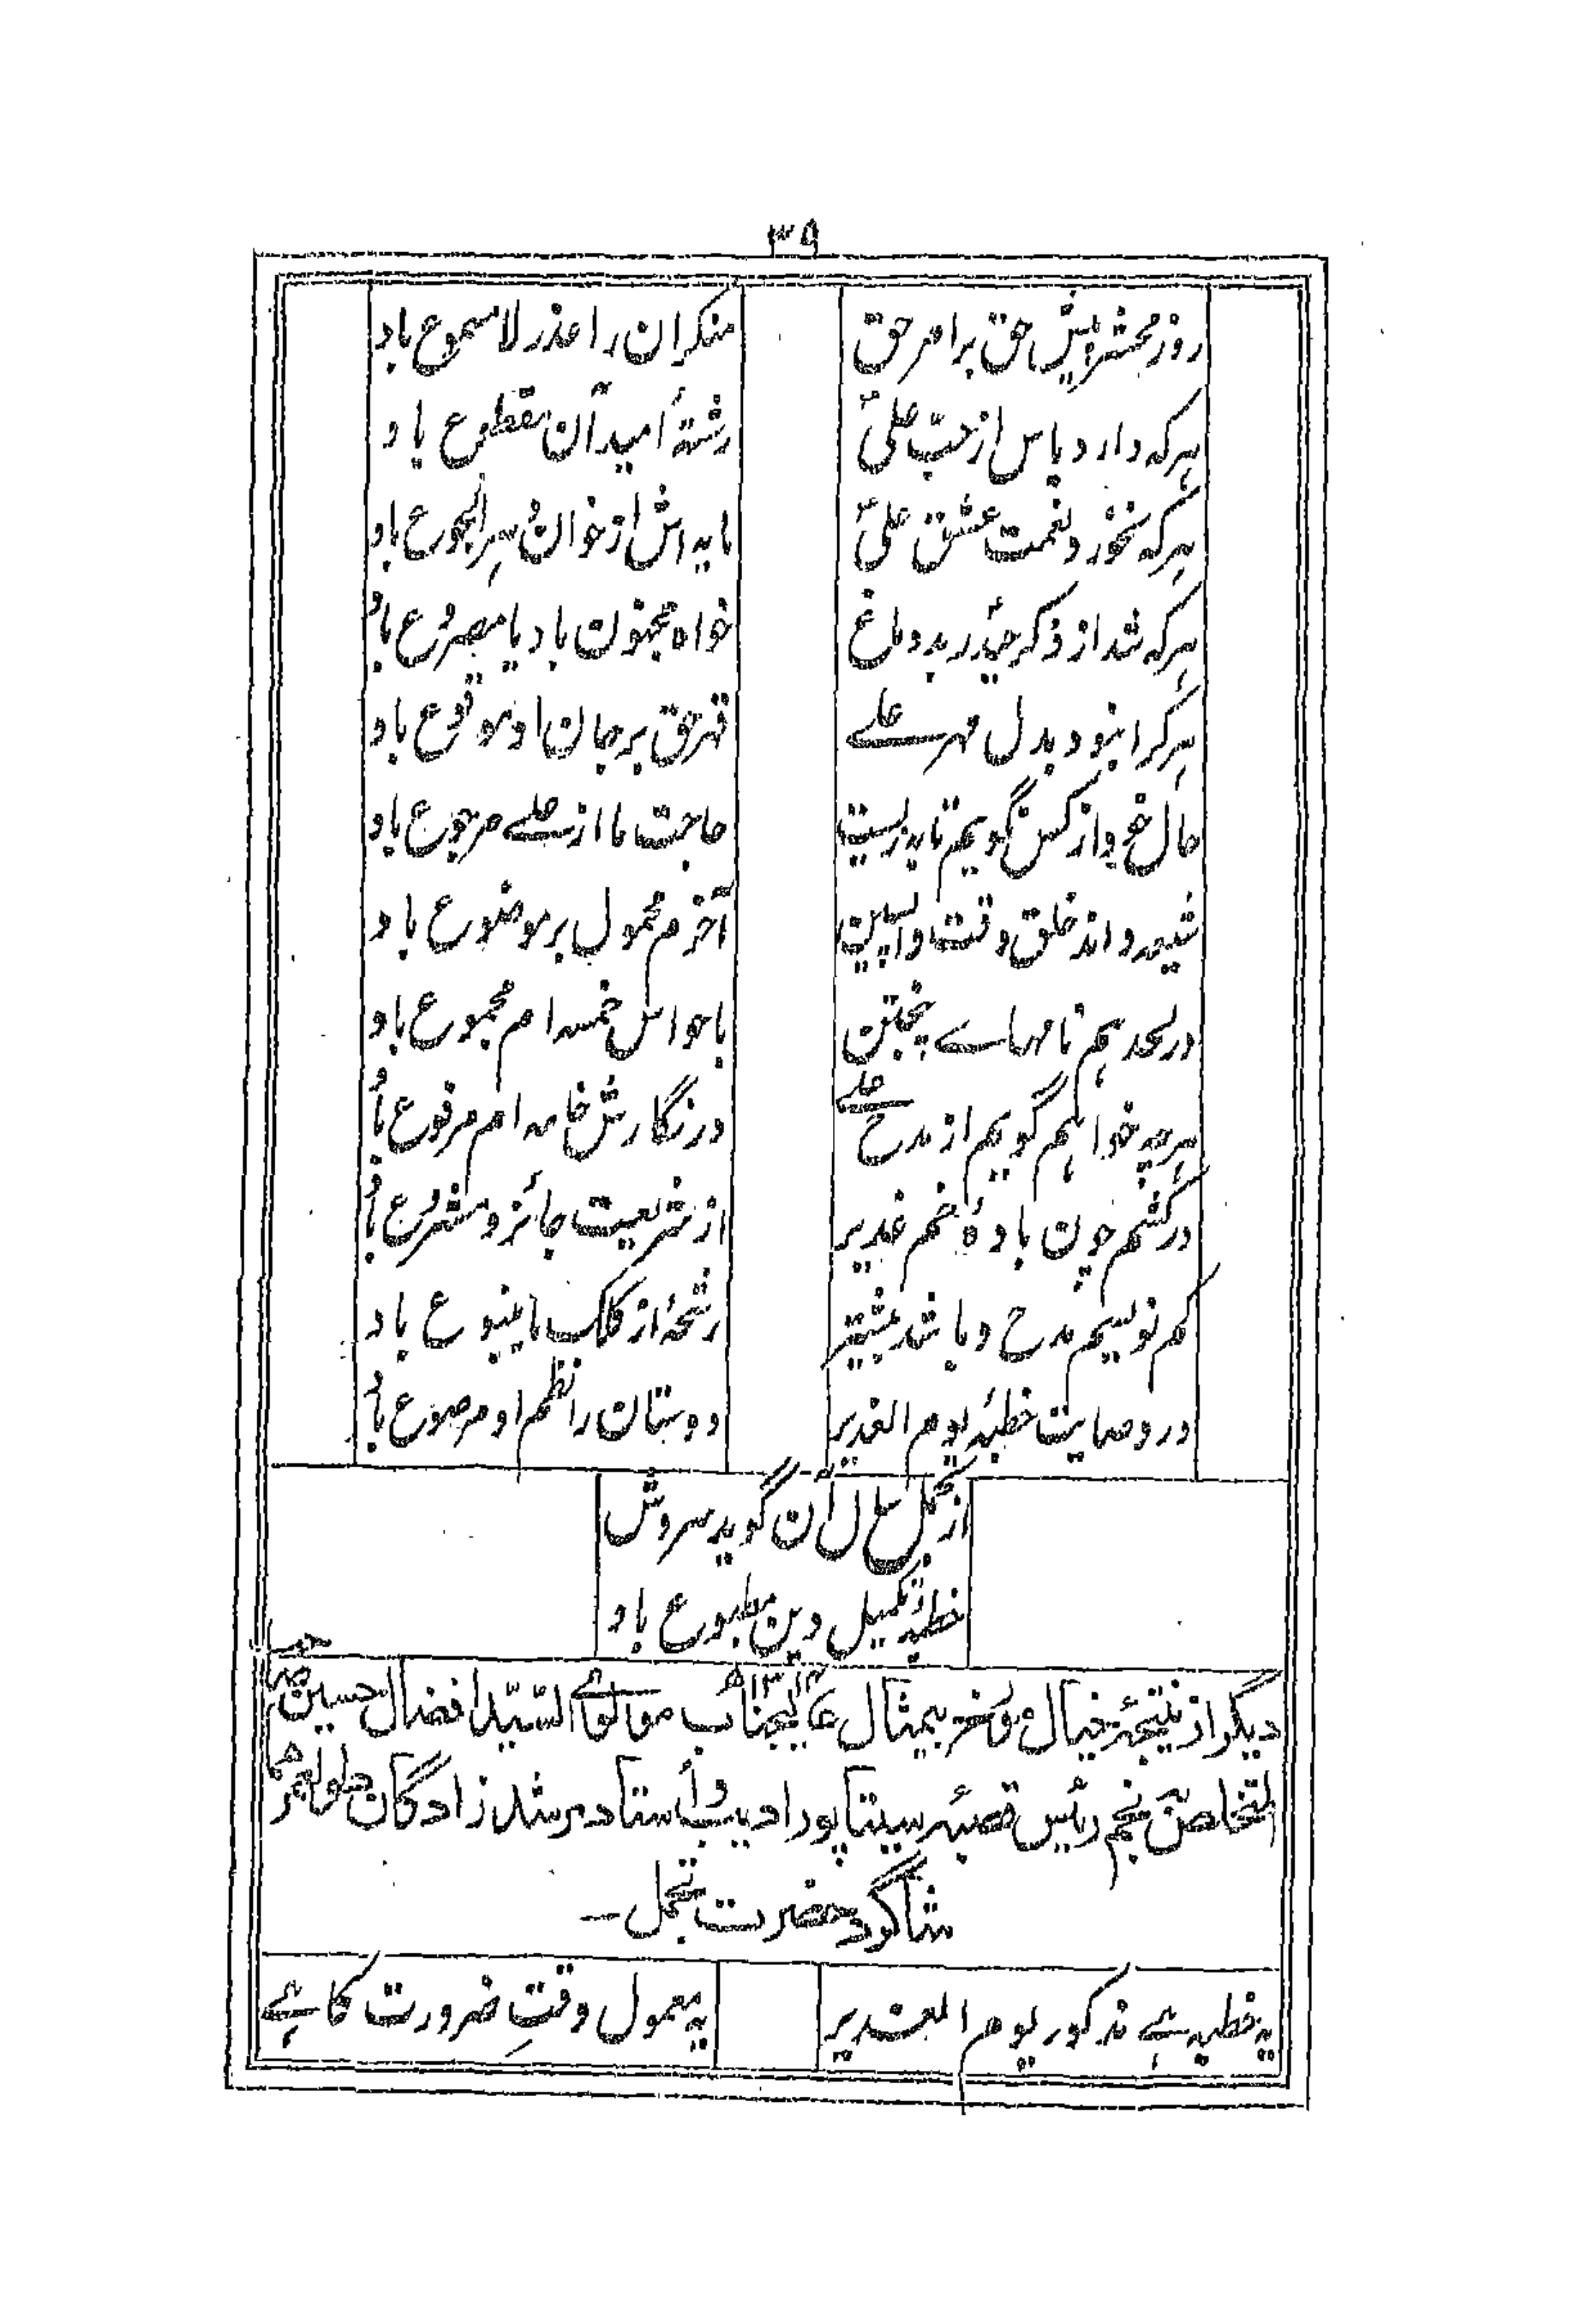 ۳۹
روز محشر پیش حق بر امر حق منکران را عذر لا مسموع باد
ہر کہ دارد یاس از حبّ علیؑ رشتۂ امید آن مقطوع باد
ہر کہ نخورد نعمت عشق علیؑ مایہ اش از خوان سر الجوع باد
ہر کہ شد از ذکر حیدر بد دماغ خواہ مجنون باد یا مصروع باد
ہر کرا نبود بدل مہر علے قہر حق بر جان او موقوع باد
حال خود از کس نگویم تا بہ زیست حاجت ما از علے مرجوع باد
شیعہ داند خلق وقت واپسین آخرم محمول بر موضوع باد
در لحد ہم نامہاے پنجتن با حواس خمسہ ام مجموع باد
ہر چہ خواہم گویم از مدح علے در نگارش خامہ ام مرفوع باد
در کشم چون بادۂ خم غدیر از شریعت جائز و مشروع باد
کم نویسم مدح و باشد بیشتر رشحۂ از کلک ما ینبوع باد
در وصایت خطبۂ یوم الغدیر دوستان را نظم او مرصوع باد
از تجمل سال آن گوید سروش
خطبۂ تکمیل دین مطبوع باد
۱۳۱۴ھ
دیگر از نتیجۂ خیال بیمثال عالیجناب مولوے السّید افضال حسین
المتخلص نجم رئیس قصبۂ سیتاپور ادیب و أستاد مرشد زادگان
شاگرد حضرت تجمل۔
یہ خطبہ ہے مذکور یوم الغدیر یہ معمول وقتِ ضرورت کا ہے